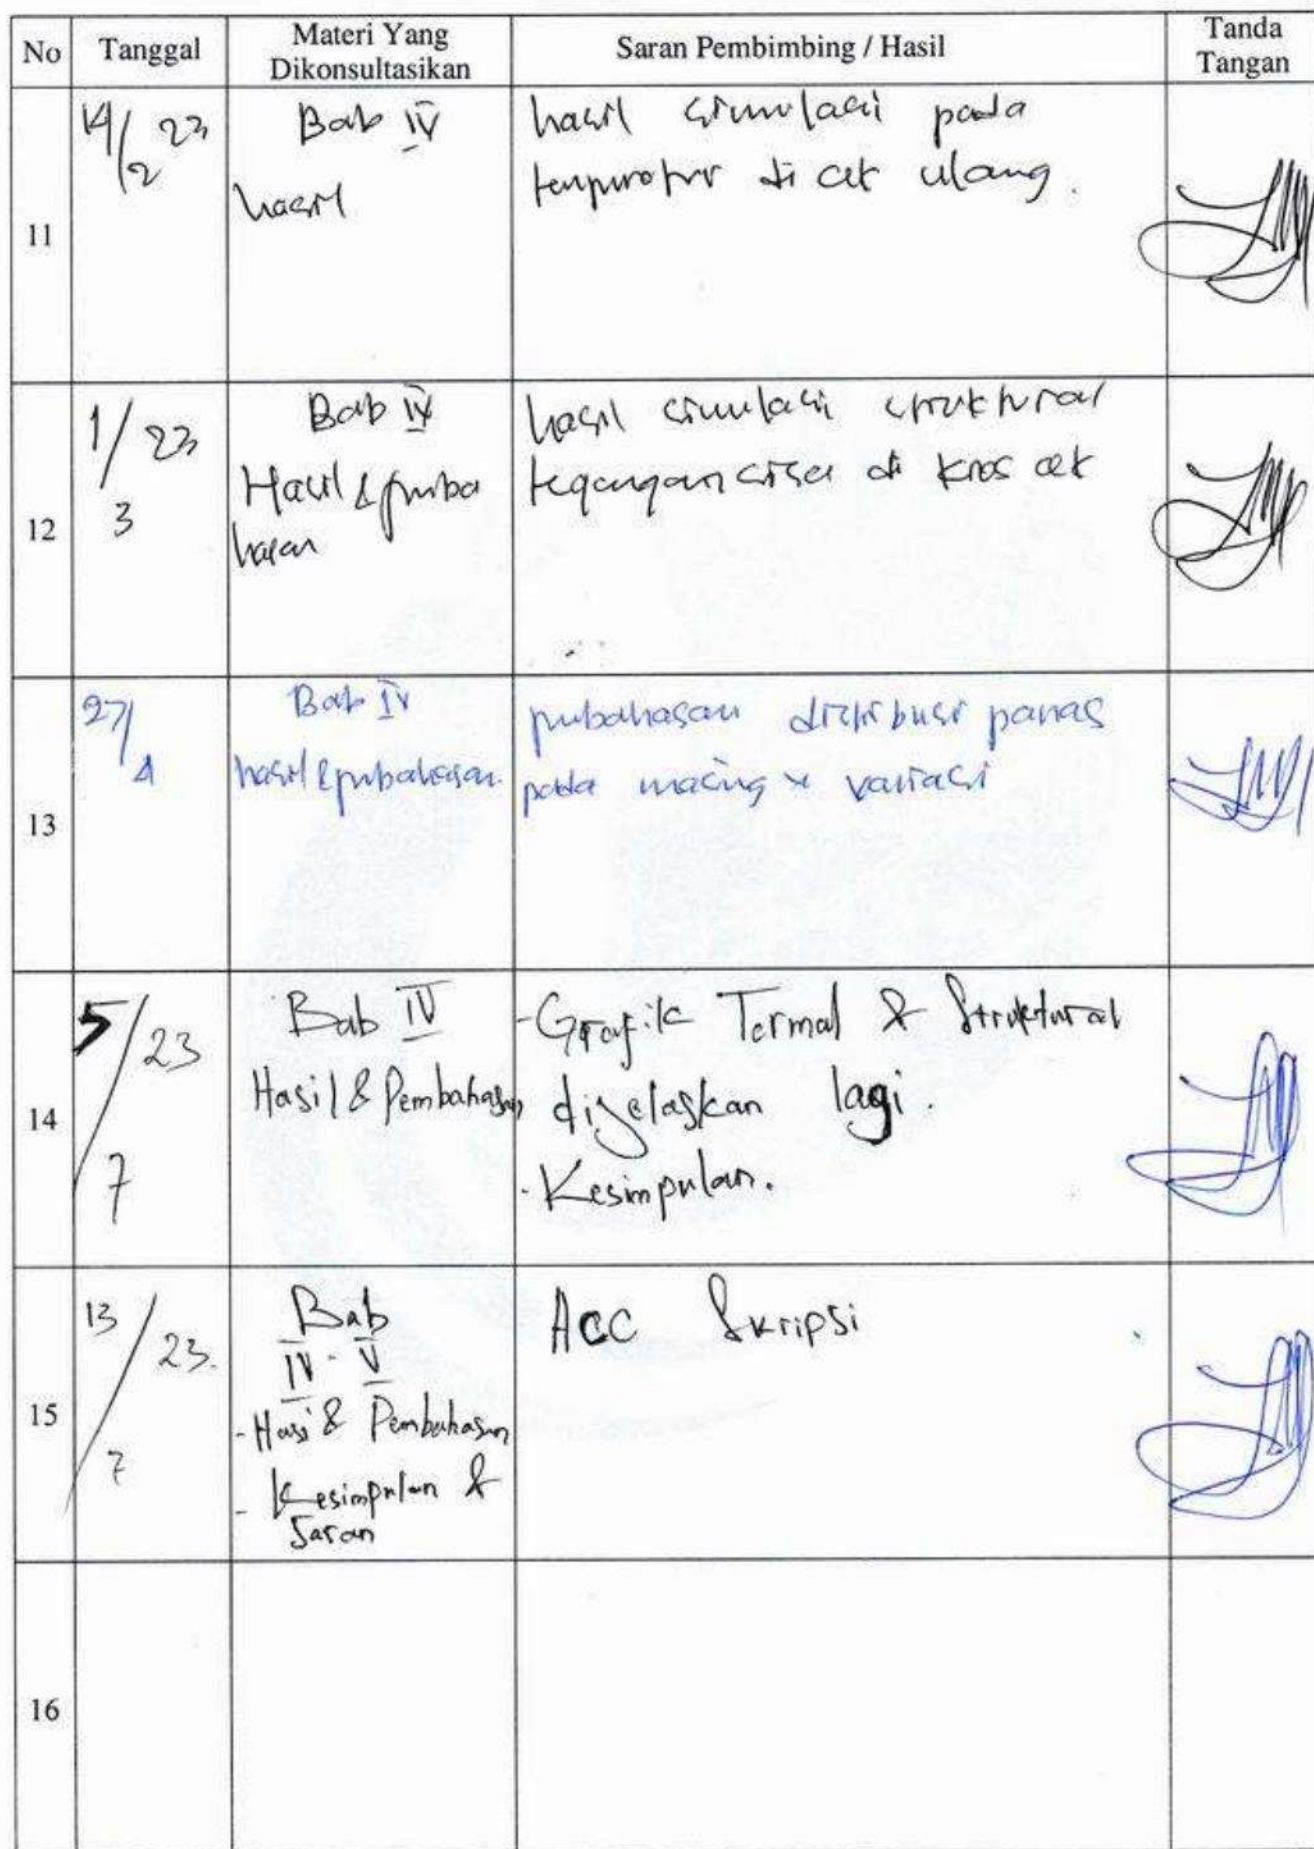 No Tanggal Materi Yang Dikonsultasikan Saran Pembimbing / Hasil Tanda Tangan
11
14/2 23
Bab IV
hasil
hasil simulasi pada
temperatur di cek ulang.
12
1/3 23
Bab IV
Hasil & pmba
hasan
hasil simulasi struktural
tegangan sisa di kros cek
13
27/4
Bab IV
hasil & pmbahasan.
pmbahasan distribusi panas
pada masing x variasi
14
5/7 23
Bab IV
Hasil & Pembahasan
- Grafik Termal & Struktural
dijelaskan lagi.
- Kesimpulan.
15
13/7 23.
Bab
IV - V
- Hasi & Pembahasan
- Kesimpulan &
Saran
ACC Skripsi
16